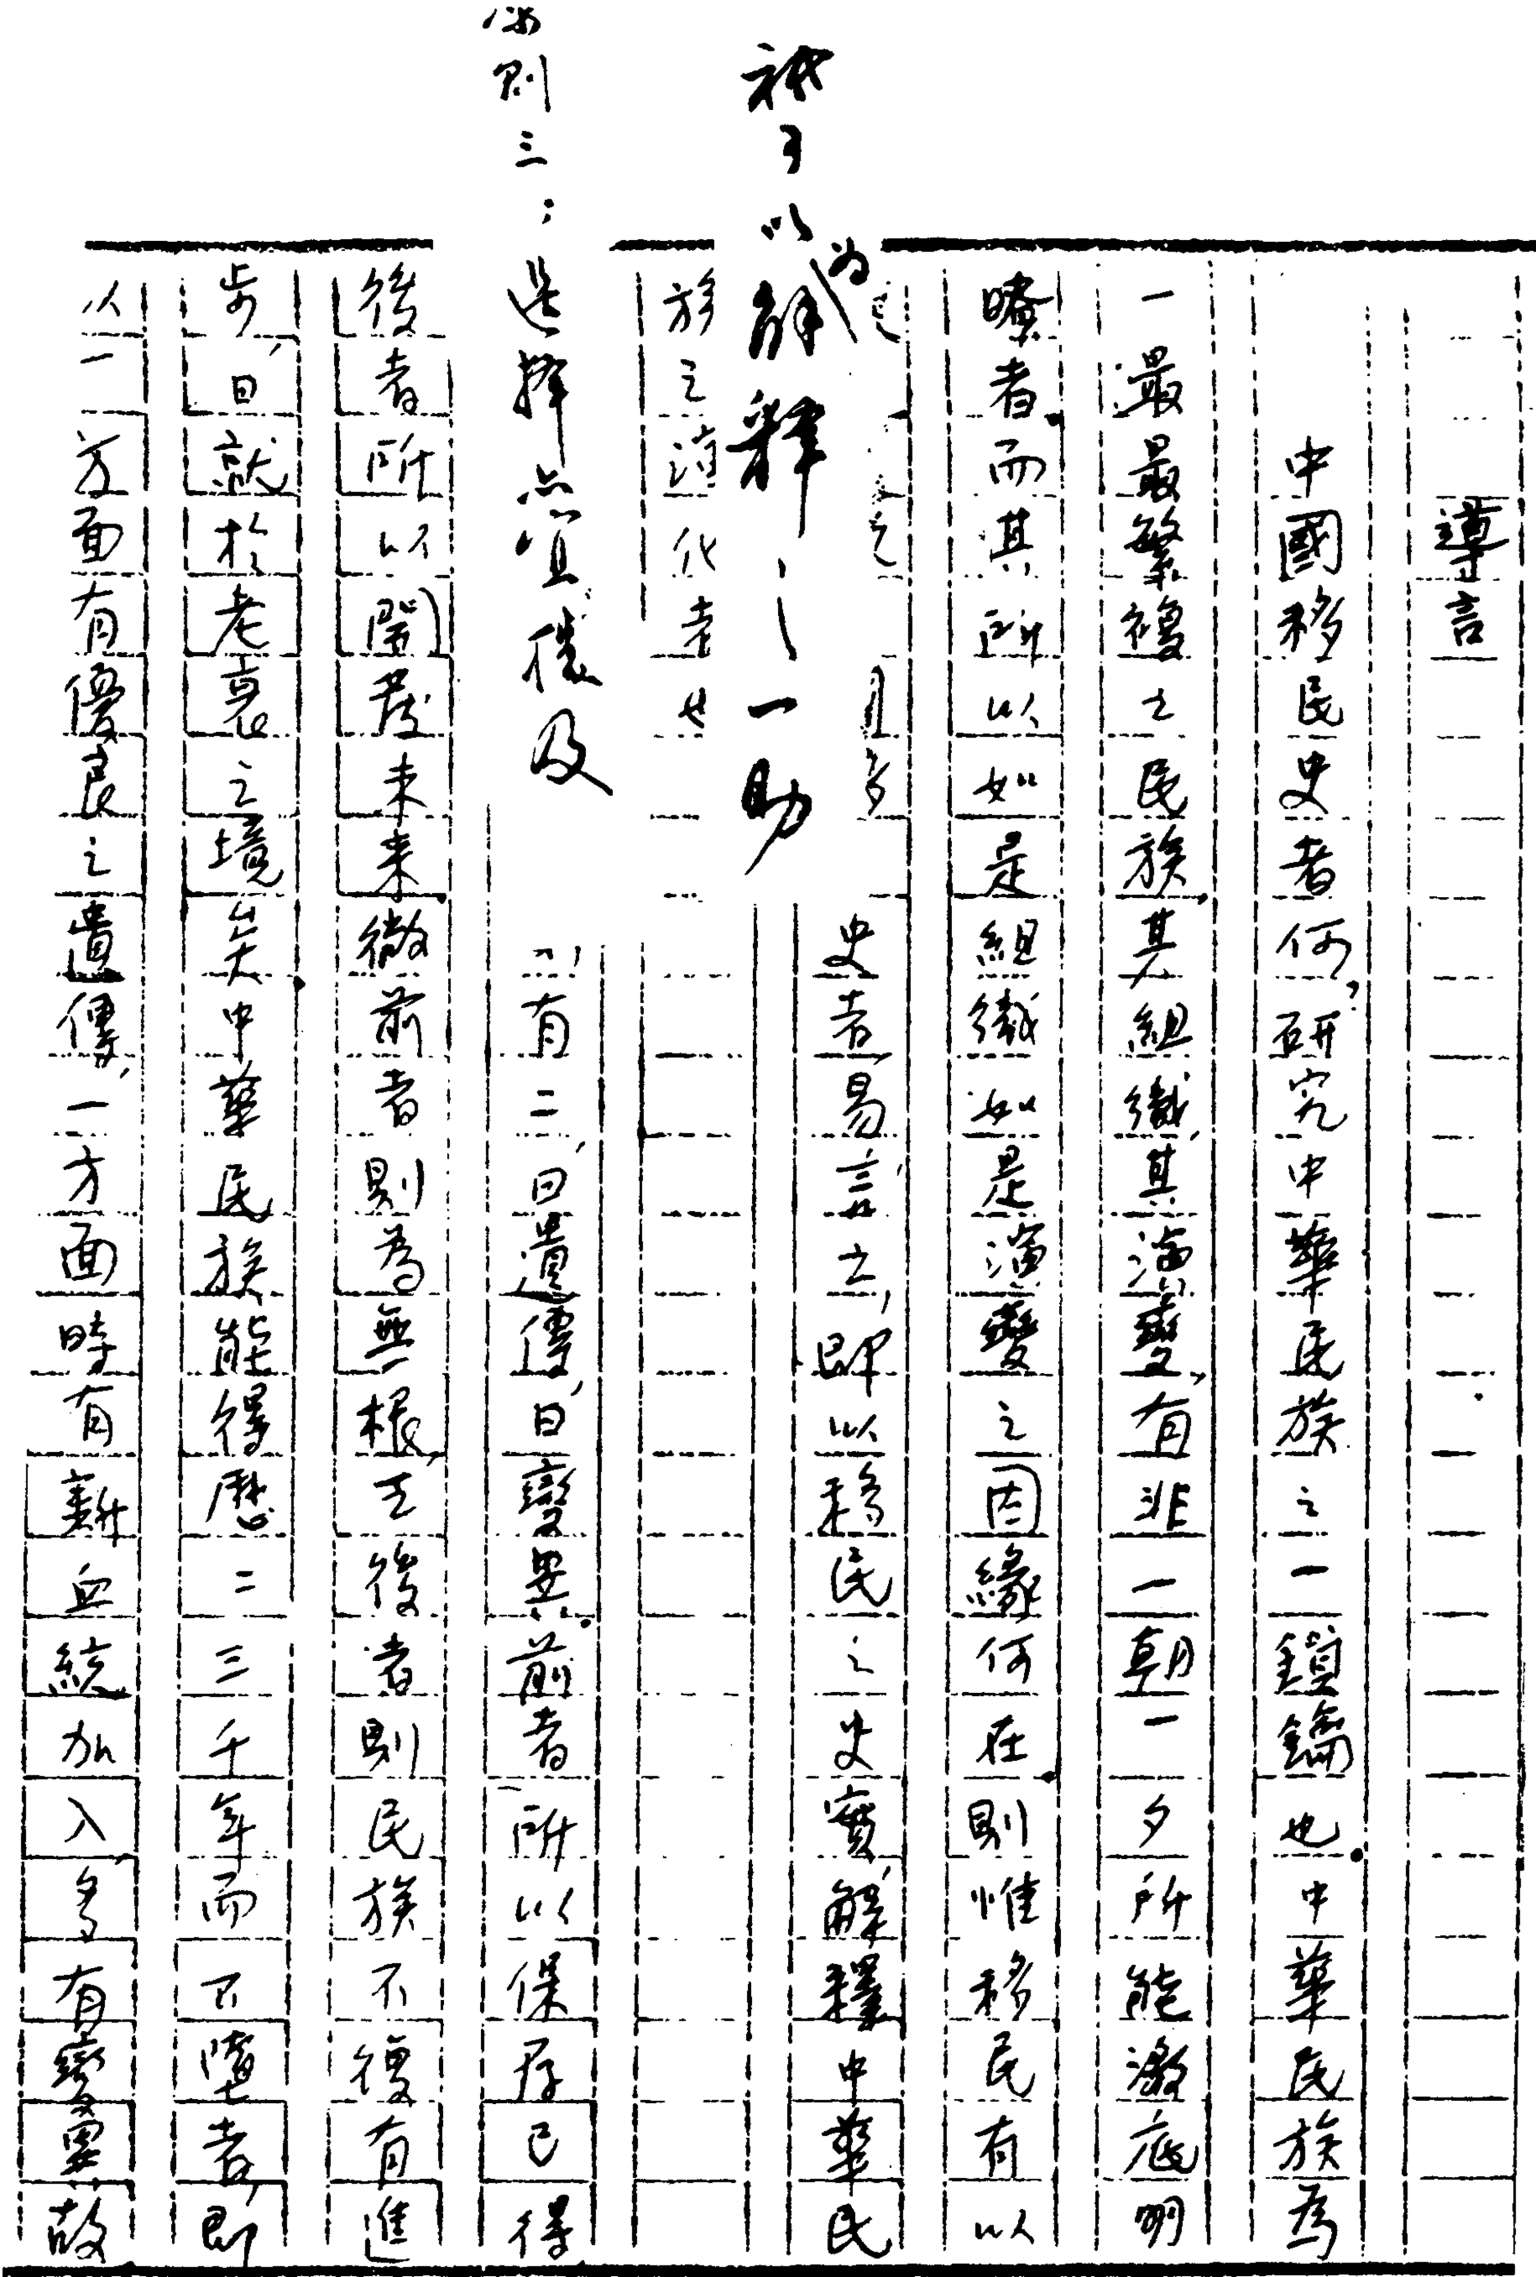 導言
中國移民史者何,研究中華民族之一鎖鑰也.中華民族為
一最最繁複之民族,其組織,其演變,有非一朝一夕所能澈底明
瞭者.而其所以如是組織如是演變之因緣何在.則惟移民有以
史者,易言之,即以移民之史實,解釋中華民
為
以解釋之一助
族之演化者也
則三:選擇
及
有二,曰遺傳,曰變異.前者所以保存已得,
後者所以開發未來.微前者則為無根,無後者則民族不復有進
步,日就於老衰之境矣.中華民族能得歷二三千年而不墮者,即
以一方面有優良之遺傳,一方面時有新血統加入,多有變異,故